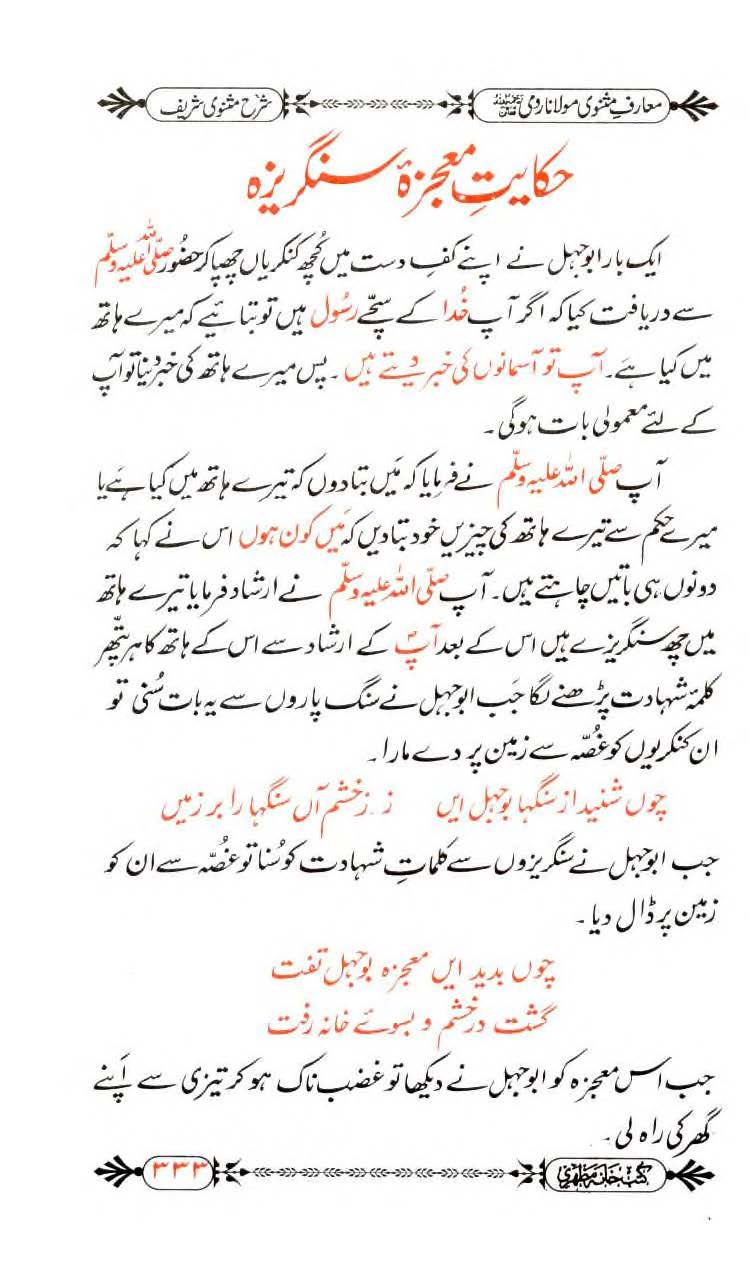 معارفِ مثنوی مولانا رومی رحمۃ اللہ علیہ شرح مثنوی شریف
حکایتِ معجزۂ سنگریزہ
ایک بار ابوجہل نے اپنے کفِ دست میں کُچھ کنکریاں چھپا کر حضُور صلّی اللہ علیہ وسلّم
سے دریافت کیا کہ اگر آپ خُدا کے سچّے رسُول ہیں تو بتائیے کہ میرے ہاتھ
میں کیا ہَے۔ آپ تو آسمانوں کی خبر دیتے ہیں ۔ پس میرے ہاتھ کی خبر دینا تو آپ
کے لئے معمولی بات ہوگی۔
آپ صلّی اللہ علیہ وسلّم نے فرمایا کہ مَیں بتا دوں کہ تیرے ہاتھ میں کیا ہَے یا
میرے حکم سے تیرے ہاتھ کی چیزیں خود بتا دیں کہ مَیں کون ہوں اس نے کہا کہ
دونوں ہی باتیں چاہتے ہیں۔ آپ صلّی اللہ علیہ وسلّم نے ارشاد فرمایا تیرے ہاتھ
میں چھ سنگریزے ہیں اس کے بعد آپؐ کے ارشاد سے اس کے ہاتھ کا ہر پتّھر
کلمۂ شہادت پڑھنے لگا جَب ابوجہل نے سنگ پاروں سے یہ بات سُنی تو
ان کنکریوں کو غُصّہ سے زمین پر دے مارا۔
چوں شنید از سنگہا بوجہل ایں ز زخشم آں سنگہا را بر زمیں
جب ابوجہل نے سنگریزوں سے کلماتِ شہادت کو سُنا تو غصّہ سے ان کو
زمین پر ڈال دیا ۔
چوں بدید ایں معجزہ بوجہل تفت
گشت در خشم و بسوئے خانہ رفت
جب اس معجزہ کو ابوجہل نے دیکھا تو غضب ناک ہو کر تیزی سے اَپنے
گھر کی راہ لی ۔
کتب خانہ مظہری ۳۳۳